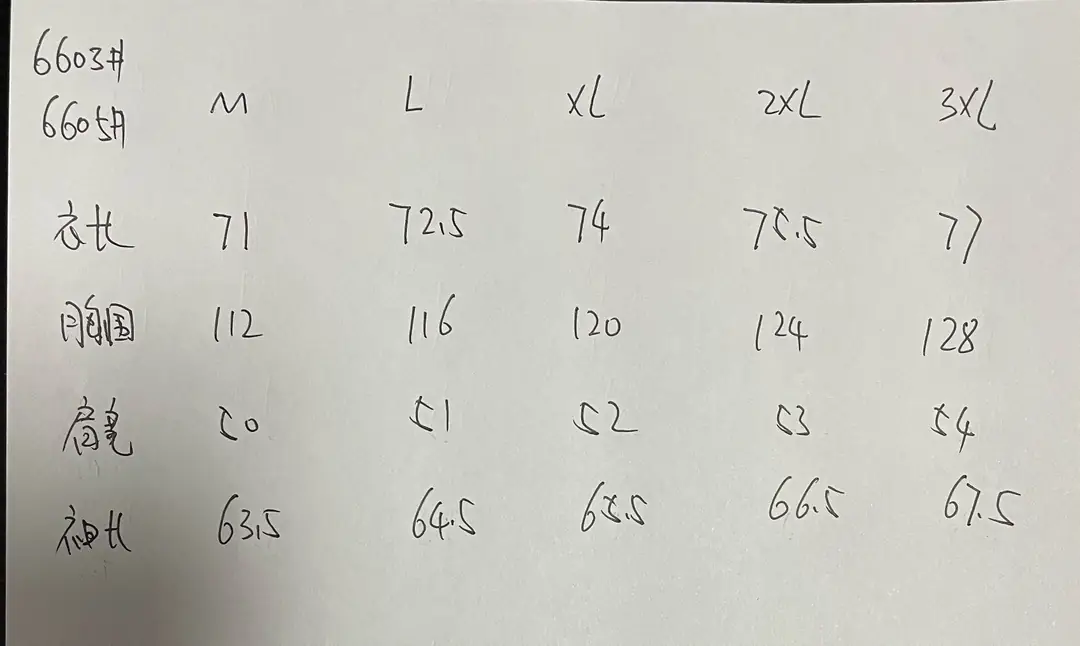 6603#
6605# M L XL 2XL 3XL
衣长 71 72.5 74 75.5 77
胸围 112 116 120 124 128
肩宽 50 51 52 53 54
袖长 63.5 64.5 65.5 66.5 67.5